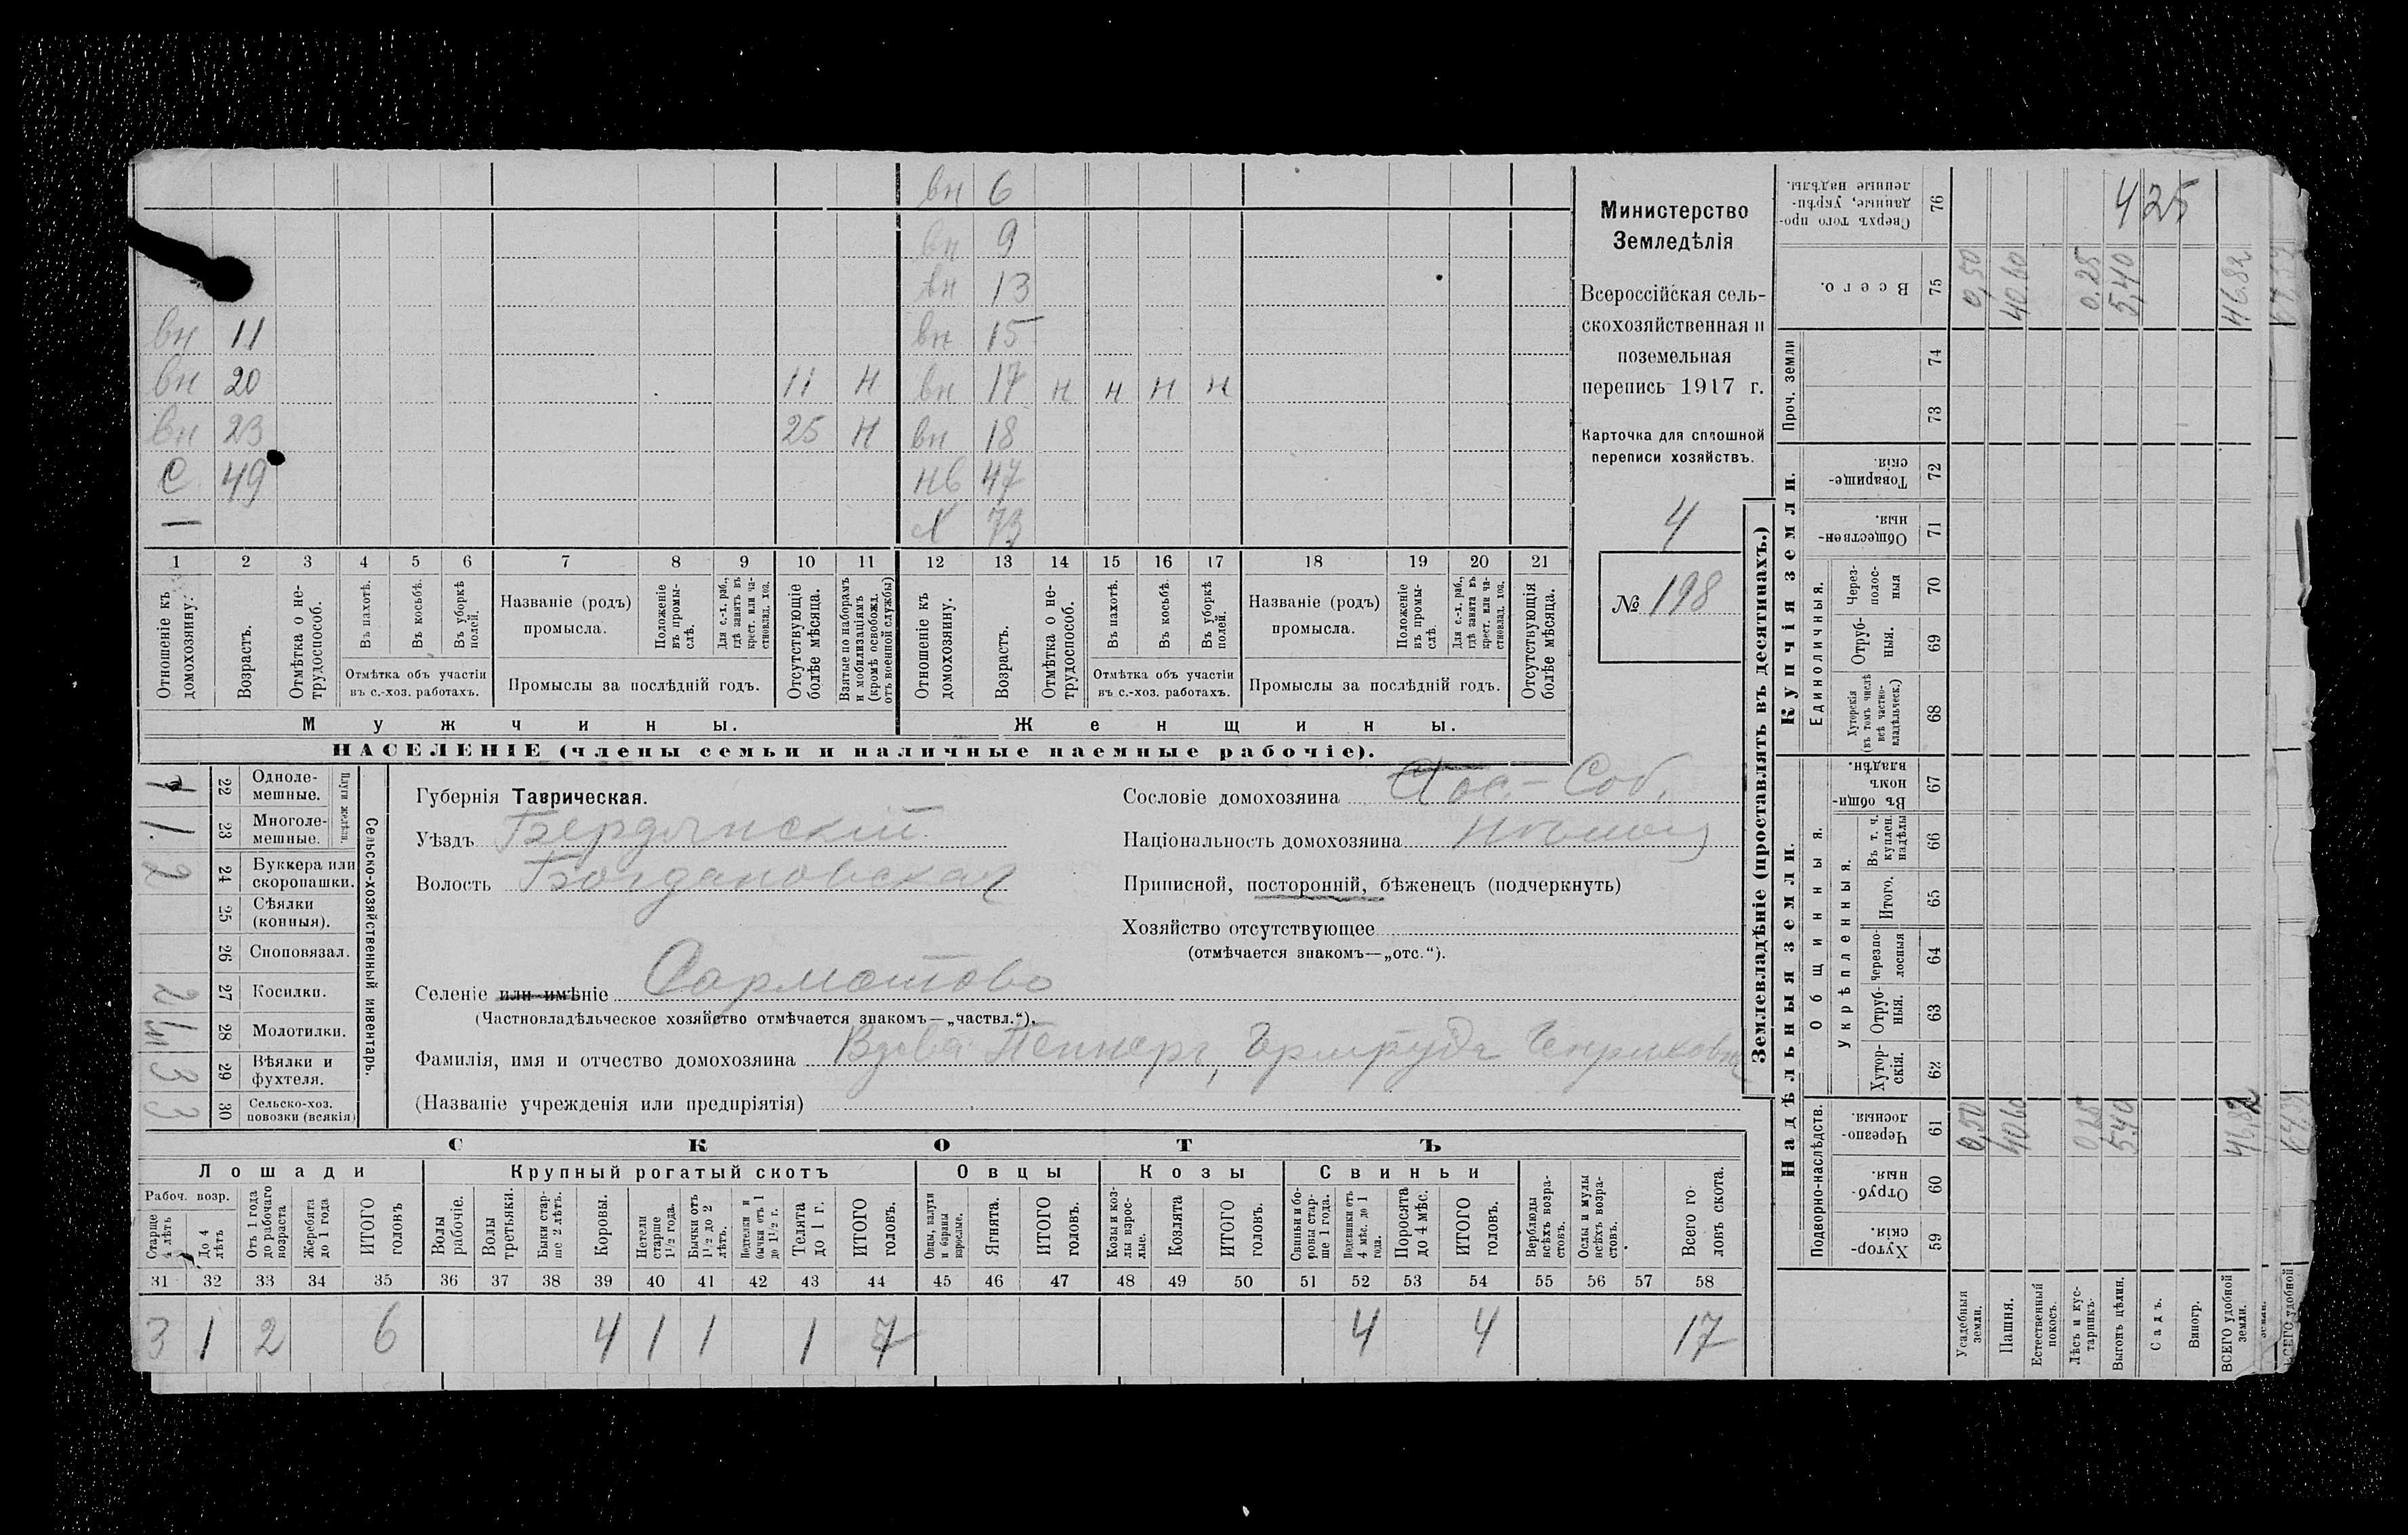 вн 6
вн 9
вн 13
вн 11 вн 15
вн 20 11 н вн 17 н н н н
вн 23 25 н вн 18
С 49 47
1 73
1 2 3 4 5 6 7 8 9 10 11 12 13 14 15 16 17 18 19 20 21
Отношеніе къ домохозяину.
Возрастъ.
Отмѣтка о нетрудоспособ.
Въ пахотѣ.
Въ косьбѣ.
Въ уборкѣ полей.
Отмѣтка объ участіи
въ с.-хоз. работахъ.
Названіе (родъ)
промысла.
Положеніе въ промыслѣ.
Для с.-х. раб., гдѣ занятъ въ крест. или частновлад. хоз.
Промыслы за послѣдній годъ.
Отсутствующіе болѣе мѣсяца.
Взятые по наборамъ и мобилизаціямъ (кромѣ освобожд. отъ военной службы)
Отношеніе къ домохозяину.
Возрастъ.
Отмѣтка о нетрудоспособ.
Въ пахотѣ.
Въ косьбѣ.
Въ уборкѣ полей.
Отмѣтка объ участіи
въ с.-хоз. работахъ.
Названіе (родъ)
промысла.
Положеніе въ промыслѣ.
Для с.-х. раб., гдѣ занята въ крест. или частновлад. хоз.
Промыслы за послѣдній годъ.
Отсутствующія болѣе мѣсяца.
Мужчины. Женщины.
НАСЕЛЕНІЕ (члены семьи и наличные наемные рабочіе).
Министерство
Земледѣлія
Всероссійская сель-
скохозяйственная и
поземельная
перепись 1917 г.
Карточка для сплошной
переписи хозяйствъ.
4
№ 198
Сельско-хозяйственный инвентарь.
Плуги желѣзн.
22 Одноле-
мешные.
1. 23 Многоле-
мешные.
2 24 Буккера или
скоропашки.
25 Сѣялки
(конныя).
26 Сноповязал.
2 27 Косилки.
28 Молотилки.
3 29 Вѣялки и
фухтеля.
3 30 Сельско-хоз.
повозки (всякія)
Губернія Таврическая.
Уѣздъ Бердянскій
Волость Богдановская
Селеніе или имѣніе Сарматово
(Частновладѣльческое хозяйство отмѣчается знакомъ—„частвл.“).
Фамилія, имя и отчество домохозяина Вдова Пеннеръ, Гертруда Генриховна
(Названіе учрежденія или предпріятія)
Сословіе домохозяина Пос.-Соб.
Національность домохозяина Нѣмец
Приписной, посторонній, бѣженецъ (подчеркнуть)
Хозяйство отсутствующее
(отмѣчается знакомъ—„отс.“).
СКОТЪ
Лошади Крупный рогатый скотъ Овцы Козы Свиньи
Рабоч. возр.
Старше 4 лѣтъ
До 4 лѣтъ
Отъ 1 года до рабочаго возраста
Жеребята до 1 года
ИТОГО головъ
Волы рабочіе.
Волы третьяки.
Быки старше 2 лѣтъ.
Коровы.
Нетели старше 1 1/2 года.
Бычки отъ 1 1/2 до 2 лѣтъ.
Подтелки и бычки отъ 1 до 1 1/2 г.
Телята до 1 г.
ИТОГО головъ.
Овцы, валухи и бараны взрослые.
Ягнята.
ИТОГО головъ.
Козы и козлы взрослые.
Козлята
ИТОГО головъ.
Свиньи и боровы старше 1 года.
Подсвинки отъ 4 мѣс. до 1 года.
Поросята до 4 мѣс.
ИТОГО головъ.
Верблюды всѣхъ возрастовъ.
Ослы и мулы всѣхъ возрастовъ.
Всего головъ скота.
31 32 33 34 35 36 37 38 39 40 41 42 43 44 45 46 47 48 49 50 51 52 53 54 55 56 57 58
3 1 2 6 4 1 1 1 7 4 4 17
Землевладѣніе (проставлять въ десятинахъ.)
Надѣльныя земли. Купчія земли.
Проч. земли
Подворно-наслѣдств.
Общинныя.
Укрѣпленныя.
Единоличныя.
76 Сверхъ того проданные, укрѣпленные надѣлы. 425
75 Всего. 0,50 40.60 0.25 5,40 46.82
74
73
72 Товарищескія.
71 Общественныя.
70 Черезполосныя
69 Отрубныя.
68 Хуторскія (въ томъ числѣ всѣ частновладѣльческ.)
67 Въ общиномъ владѣн.
66 Въ т. ч. куплен. надѣлы
65 Итого.
64 Черезполосныя
63 Отрубныя.
62 Хуторскія.
61 Черезполосныя. 0,50 40.60 0,25 5,40 46,82
60 Отрубныя.
59 Хуторскія.
Усадебныя земли.
Пашня.
Естественный покосъ.
Лѣсъ и кустарникъ.
Выгонъ цѣлин.
Садъ.
Виногр.
ВСЕГО удобной земли.
ВСЕГО удобной